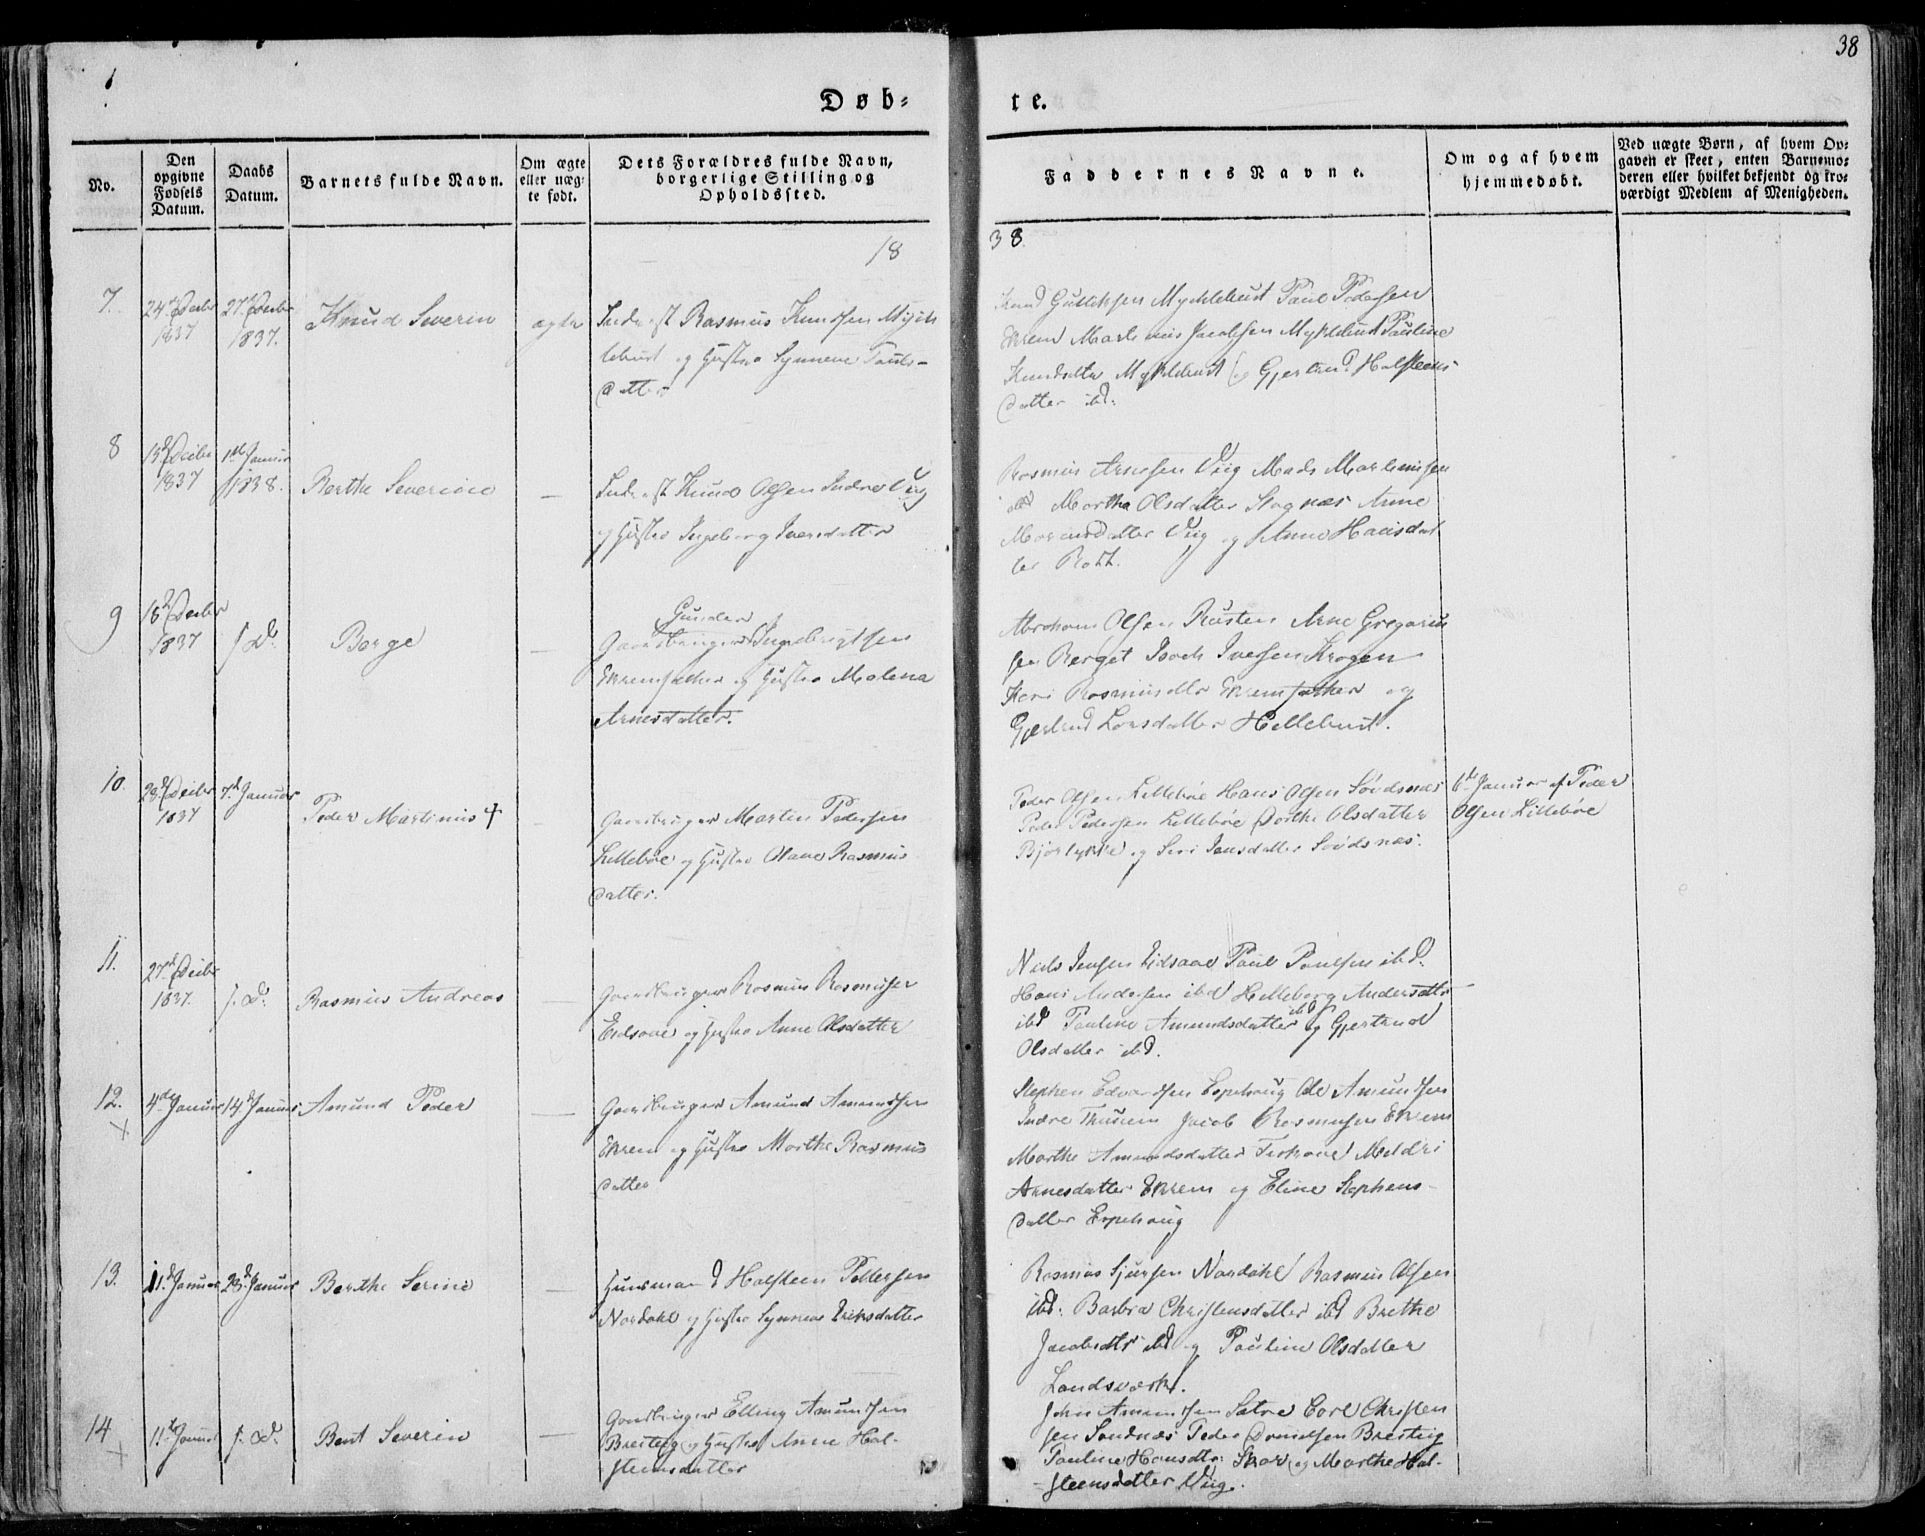 38
Døb-
te.
No.
Den opgivne Fødsels Datum.
Daabs Datum.
Barnets fulde Navn.
Om ægte eller uægte født.
Dets Forældres fulde Navn, borgerlige Stilling og Opholdssted.
Faddernes Navne.
Om og af hvem hjemmedøbt.
Ved uægte Børn, af hvem Opgaven er skeet, enten Barnemoderen eller hvilket bekjendt og troværdigt Medlem af Menigheden.
18
38
7.
24de Decbr 1837
27de Decbr 1837.
Knud Severin
ægte
Inderst Rasmus Knudsen Myk
lebust og Hustro Synneve Pauls-
datter
Knud Gulliksen Myklebust Paul Pedersen
Ekrem Martinus Jacobsen Myklebust Pauline
Knudsdtr Myklebust og Gjertrud Halsteens-
datter ibd:
8
1837
1ste Januar 1838.
Berthe Severine
—
Inderst Knud Olsen Indre Viig
og Hustro Ingeborg Iversdatter
Rasmus Arnesen Viig Mads Martinusen
ibd Martha Olsdatter Stognæs Anne
datter Viig og Anne Hansdat
ter
9
18de Decbr 1837
s. D.
Børge
—
Gunder
Gaardbruger Ingebrigtsen
Ekremsæther og Hustro Malena
Arnesdatter.
Abraham Olsen Rusten Arne Gregorius
sen Berget Isach Iversen Krogen
Kari Rasmusdtr Ekremsæther og
Gjertrud Larsdatter Hellebust.
10.
28de Decbr 1837
7de Januar
Peder Martinus +
Gaardbruger Martin Pedersen
Lillebøe og Hustro Olane Rasmus
datter.
Peder Olsen Lillebøe Hans Olsen Sødsnæs
Peder Pedersen Lillebøe Dorthe Olsdatter
Bjørlykke og Siri Jensdatter Sødsnæs.
6te Januar af Peder
Olsen Lillebøe
11.
27de Decbr
1837.
s. D.
Rasmus Andreas
—
Gaardbruger Rasmus Rasmussen
Eidsaae og Hustro Anne Olsdatter
Niels Jensen Eidsaae Paul Paulsen ibd.
Hans Andersen ibd Helleborg Andersdtr
ibd Pauline Amundsdatter ibd og Gjertrud
Olsdatter ibd.
12.
x
4de Januar
14de Januar
Amund Peder
—
Gaardbruger Amund Amundsen
Ekrem og Hustro Marthe Rasmus
datter
Stephen Edvardsen Espehoug Ole Amundsen
Indre Jacob Rasmusen Ekrem
Marthe Amundsdatter Meldri
Arnesdatter Ekrem og Eline Stephens-
datter Espehoug
13.
11. Januar
28de Januar
Berthe Serine
—
Huusmand Halsteen Pettersen
Nordahl og Hustro Synneve Eriksdatter
Rasmus Sjursen Nordahl Rasmus Olsen
ibd: Barbra Christensdatter ibd Brethe
Jacobsdtr ibd og Pauline Olsdatter
Landsværk.
14
x
11te Januar
s. D.
Bent Severin
—
Gaardbruger Elling Amundsen
Breiteig og Hustro Anne Hal-
steensdatter
John Amundsen Sætre Carl Christen
sen Sandnæs Peder Breiteig
Pauline Hansdtr: Skor og Marthe Hal-
steensdatter Viig.